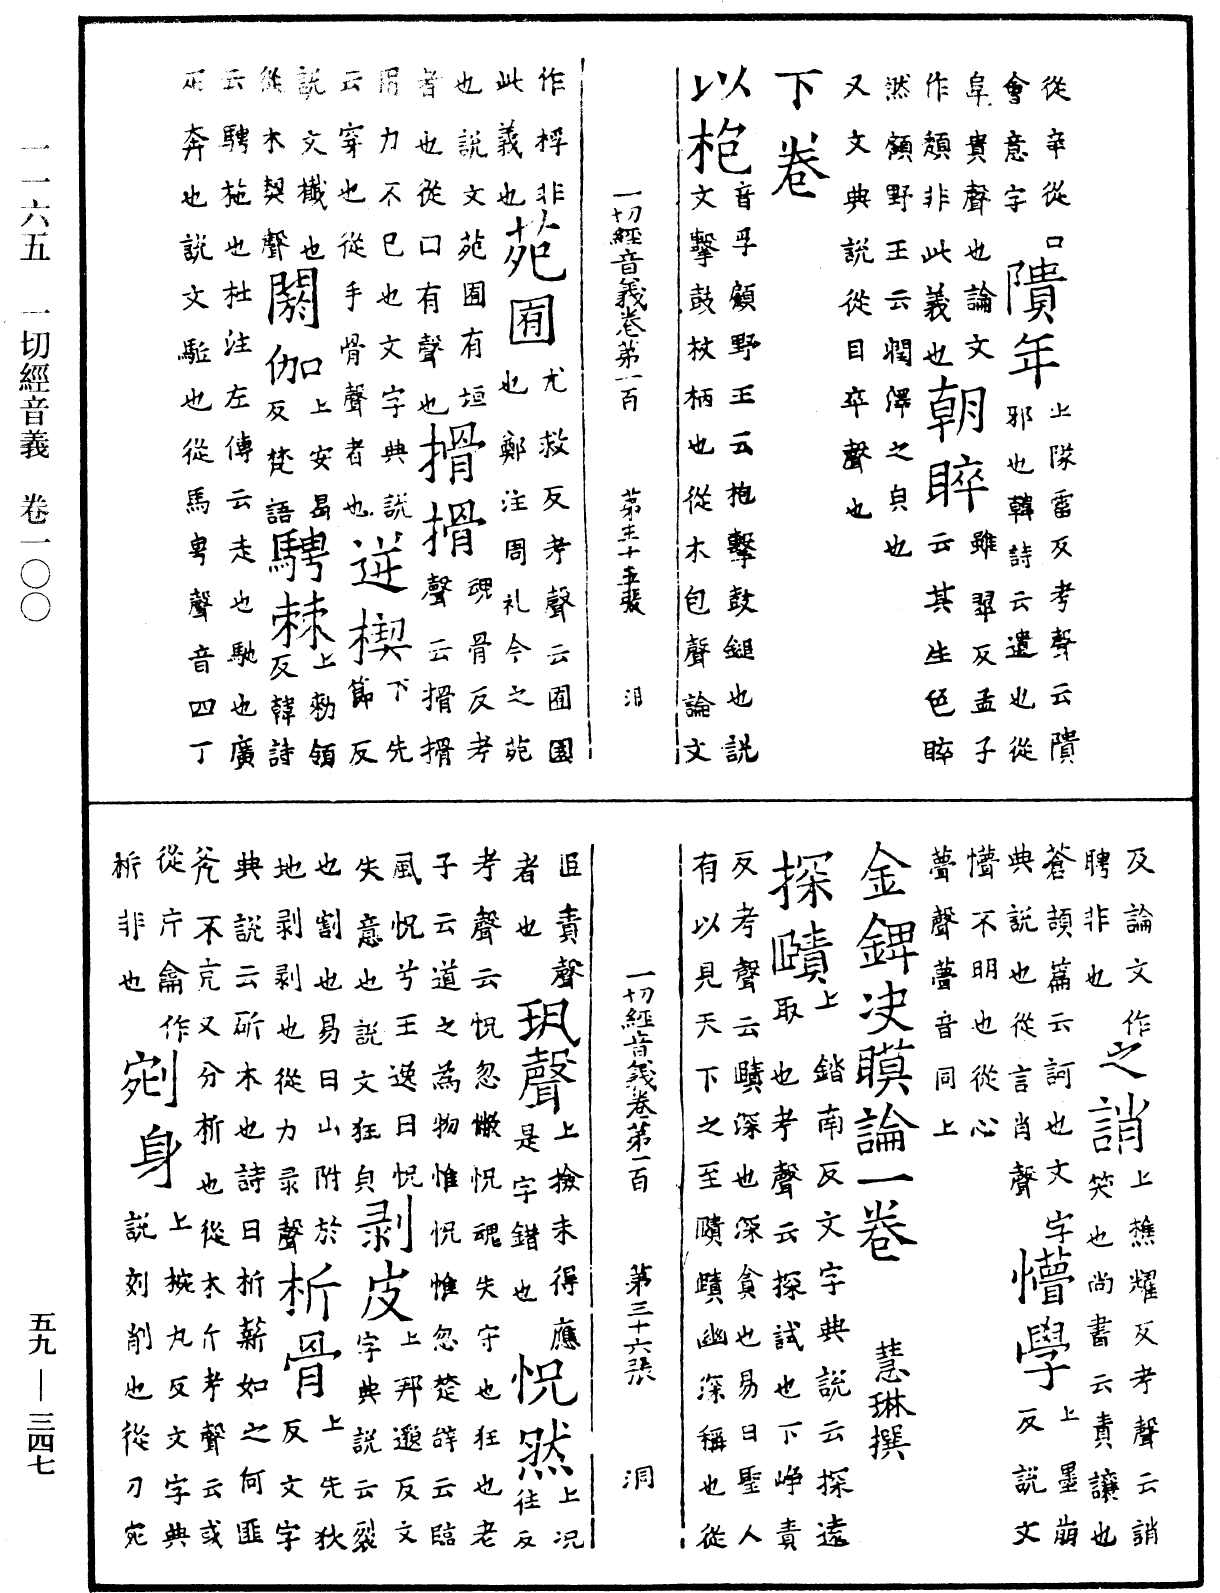 從辛從口隤年上隊雷反考聲云隤
會意字　　邪也韓詩云遺也從
阜貴聲也論文朝睟雖翠反孟子
作頹非此義也　　云其生色睟
然顧野王云潤澤之皃也
又文典說從目卒聲也
下卷
以枹音孚顧野王云抱擊鼓鎚也說
文擊鼓杖柄也從木包聲論文
一切經音義卷第一百　第三十五張　洎
作桴非苑囿尤救反考聲云囿園
此義也　　也鄭注周礼今之苑
也說文苑囿有垣搰搰魂骨反考
者也從口有聲也　　聲云搰搰
用力不巳也文字典說逆楔下先
云穿也從手骨聲者也　　節反
說文櫼也閼伽上安曷騁棘上勑領
從木契聲　　反梵語　　反韓詩
云騁施也杜注左傳云走也馳也廣
疋奔也說文駈也從馬甹聲音四丁
及論文作之誚上樵耀反考聲云誚
聘非也　　笑也尚書云責讓也
蒼頡篇云訶也文字懵學上墨崩
典說也從言肖聲　　反說文
懵不明也從心
瞢聲瞢音同上
金錍决瞙論一卷　慧琳撰
探賾上鍇南反文字典說云探遠
取也考聲云探試也下崢責
反考聲云賾深也深貪也易曰聖人
有以見天下之至賾賾幽深稱也從
一切經音義卷第一百　第三十六張　洞
𦣞責聲玬聲上撿未得應怳然上況
者也　　是字錯也　　往反
考聲云怳忽懒怳魂失守也狂也老
子云道之為物惟怳惟忽楚辝云臨
風怳兮王逸曰怳剥皮上邦邈反文
失意也說文狂皃　　字典說云裂
也割也易曰山附於析骨上先狄
地剥剥也從力录聲　　反文字
典說云斫木也詩曰析薪如之何匪
斧不克又分析也從木斤考聲云或
從片龠作剜身上椀丸反文字典
析非也　　說刻削也從刀宛
一一六五　一切經音義　卷一〇〇
五九—三四七